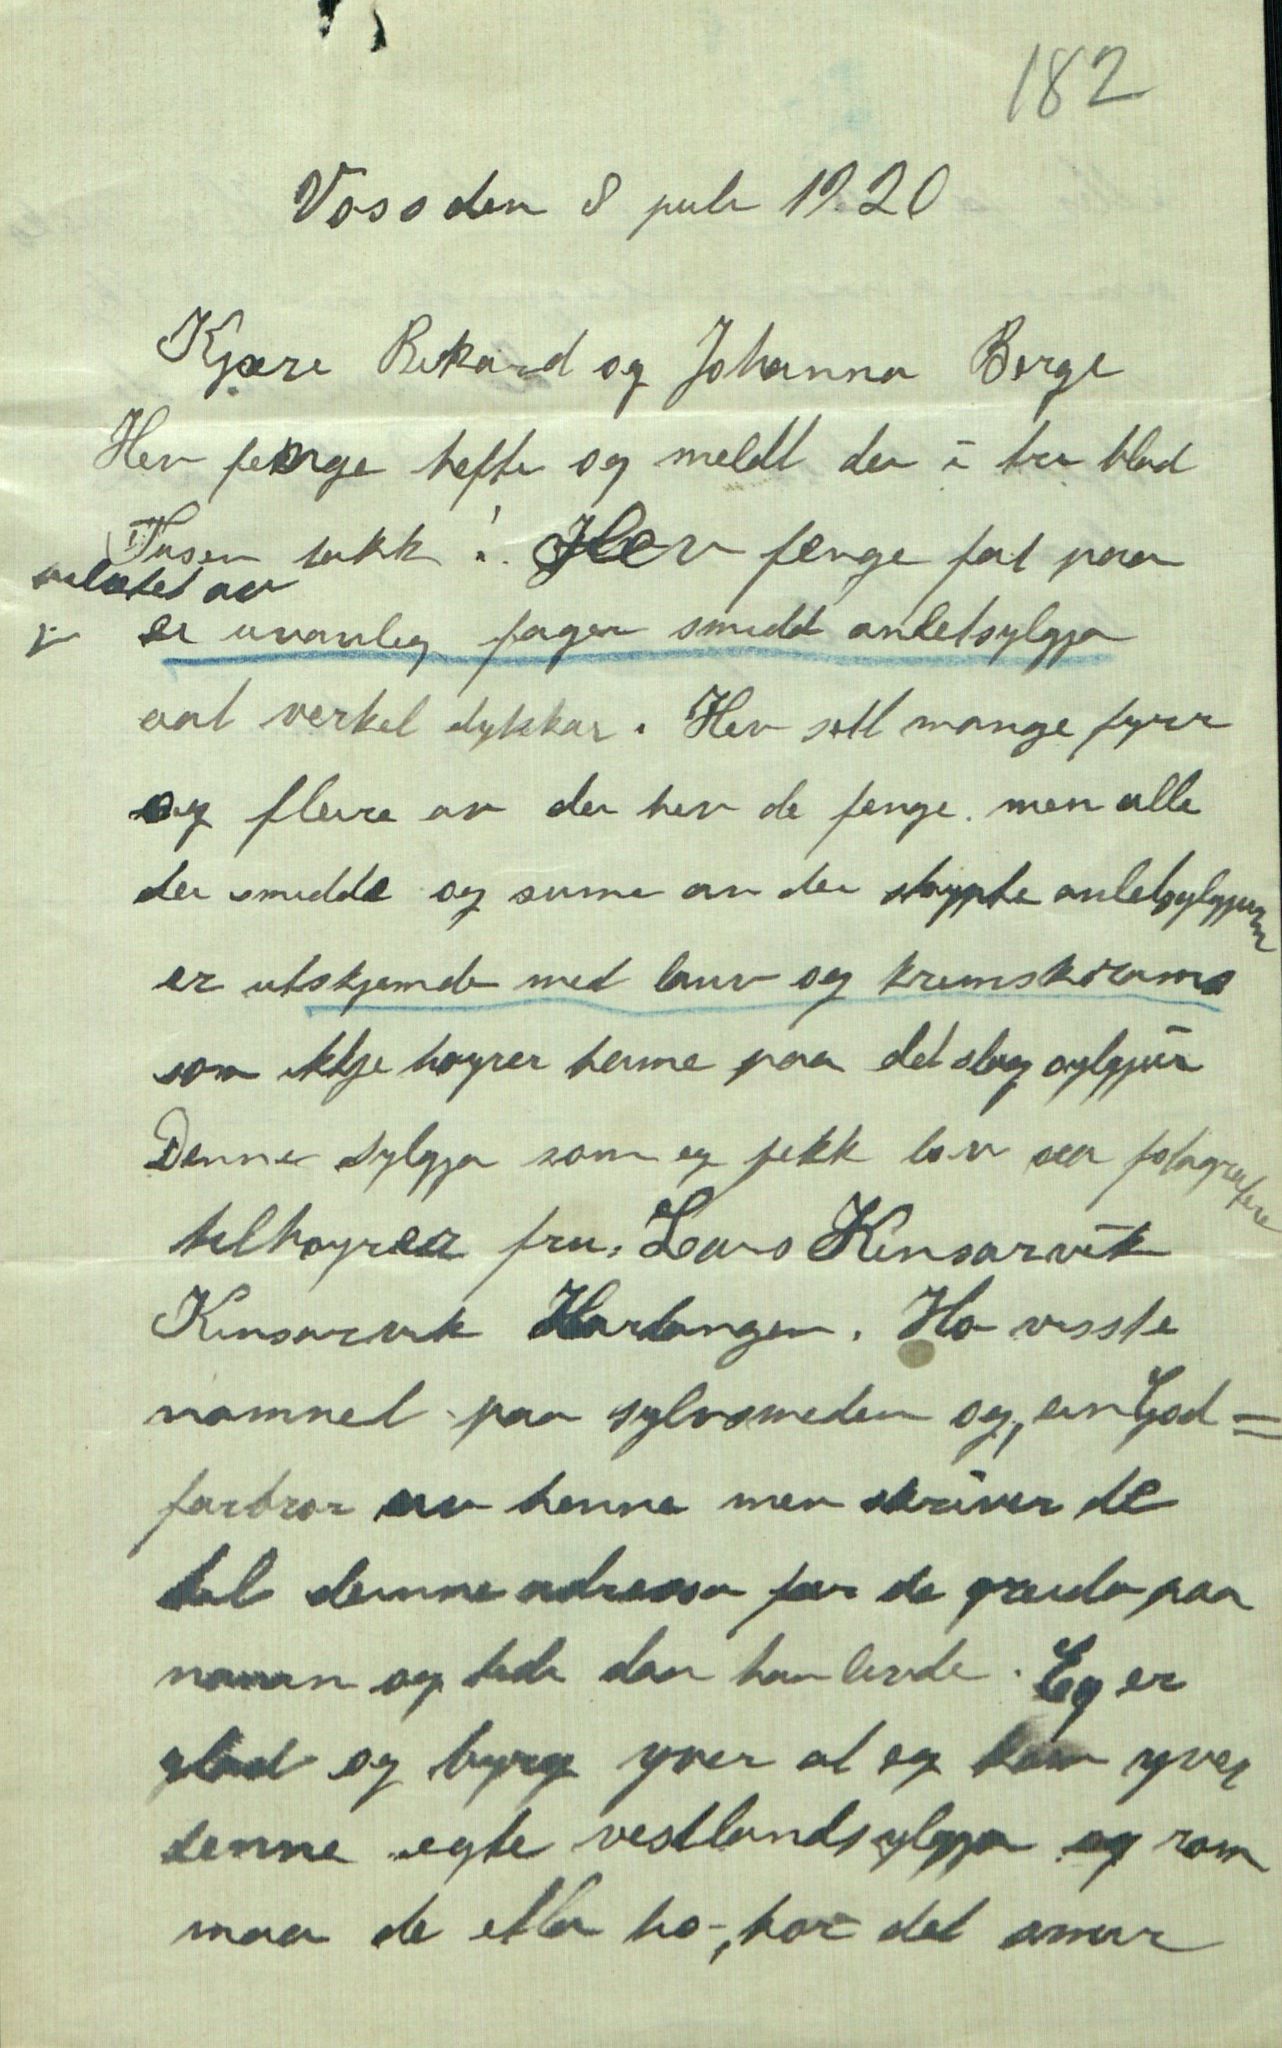 182
Voss den 8 juli 1920
Kjære Rikard og Johanna Berge
Hev fenge hefte og meldt der i tvo blad
Tusen takk! Hev fenge fat paa
avlatet av
ei uvanleg fager smidd anletsylgja
aat verket dykkar. Hev sett mange fyrr
og fleire av dei hev de fenge. men alle
dei smidde og sume av dei støypte anletsylgjurr
er utskjemde med lauv og krimskrams
som ikkje høyrer heime paa det slag sylgjur
Denne sylgja som eg fekk lov aa fotografere
tilhøyrer fru, Lars Kinsarvik
Kinsarvik Hardanger. Ho visste
namnet paa sylvsmeden og, ein God=
farbror av henne men skriver de
til denne adressa fær de greida paa
namn og tidi daa han levde. Eg er
glad og byrg yver at eg kom yver
denne egte vestlandsylgja og rom
maa de etla ho, hor det smur